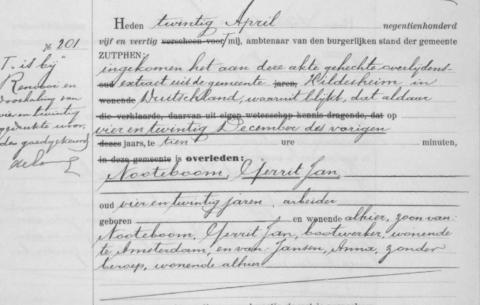 № 201
T. is bij
Renvooi en
doorhaling van
vier en twintig
gedrukte woor-
den goedgekeurd
Heden twintig April negentienhonderd
vijf en veertig verscheen voor mij, ambtenaar van den burgerlijken stand der gemeente
ZUTPHEN:
ingekomen het aan deze akte gehechte overlijdens-
oud extract uit de gemeente jaren, Hildesheim in
wonende Duitschland, waaruit blijkt, dat aldaar
die verklaarde, daarvan uit eigen wetenschap kennis dragende, dat op
vier en twintig December des vorigen
dezes jaars, te tien ure minuten,
in deze gemeente is overleden:
Nooteboom, Gerrit Jan
oud vier en twintig jaren, arbeider
geboren en wonende alhier, zoon van
Nooteboom, Gerrit Jan, bootwerker, wonende
te Amsterdam, en van Jansen, Anna, zonder
beroep, wonende alhier